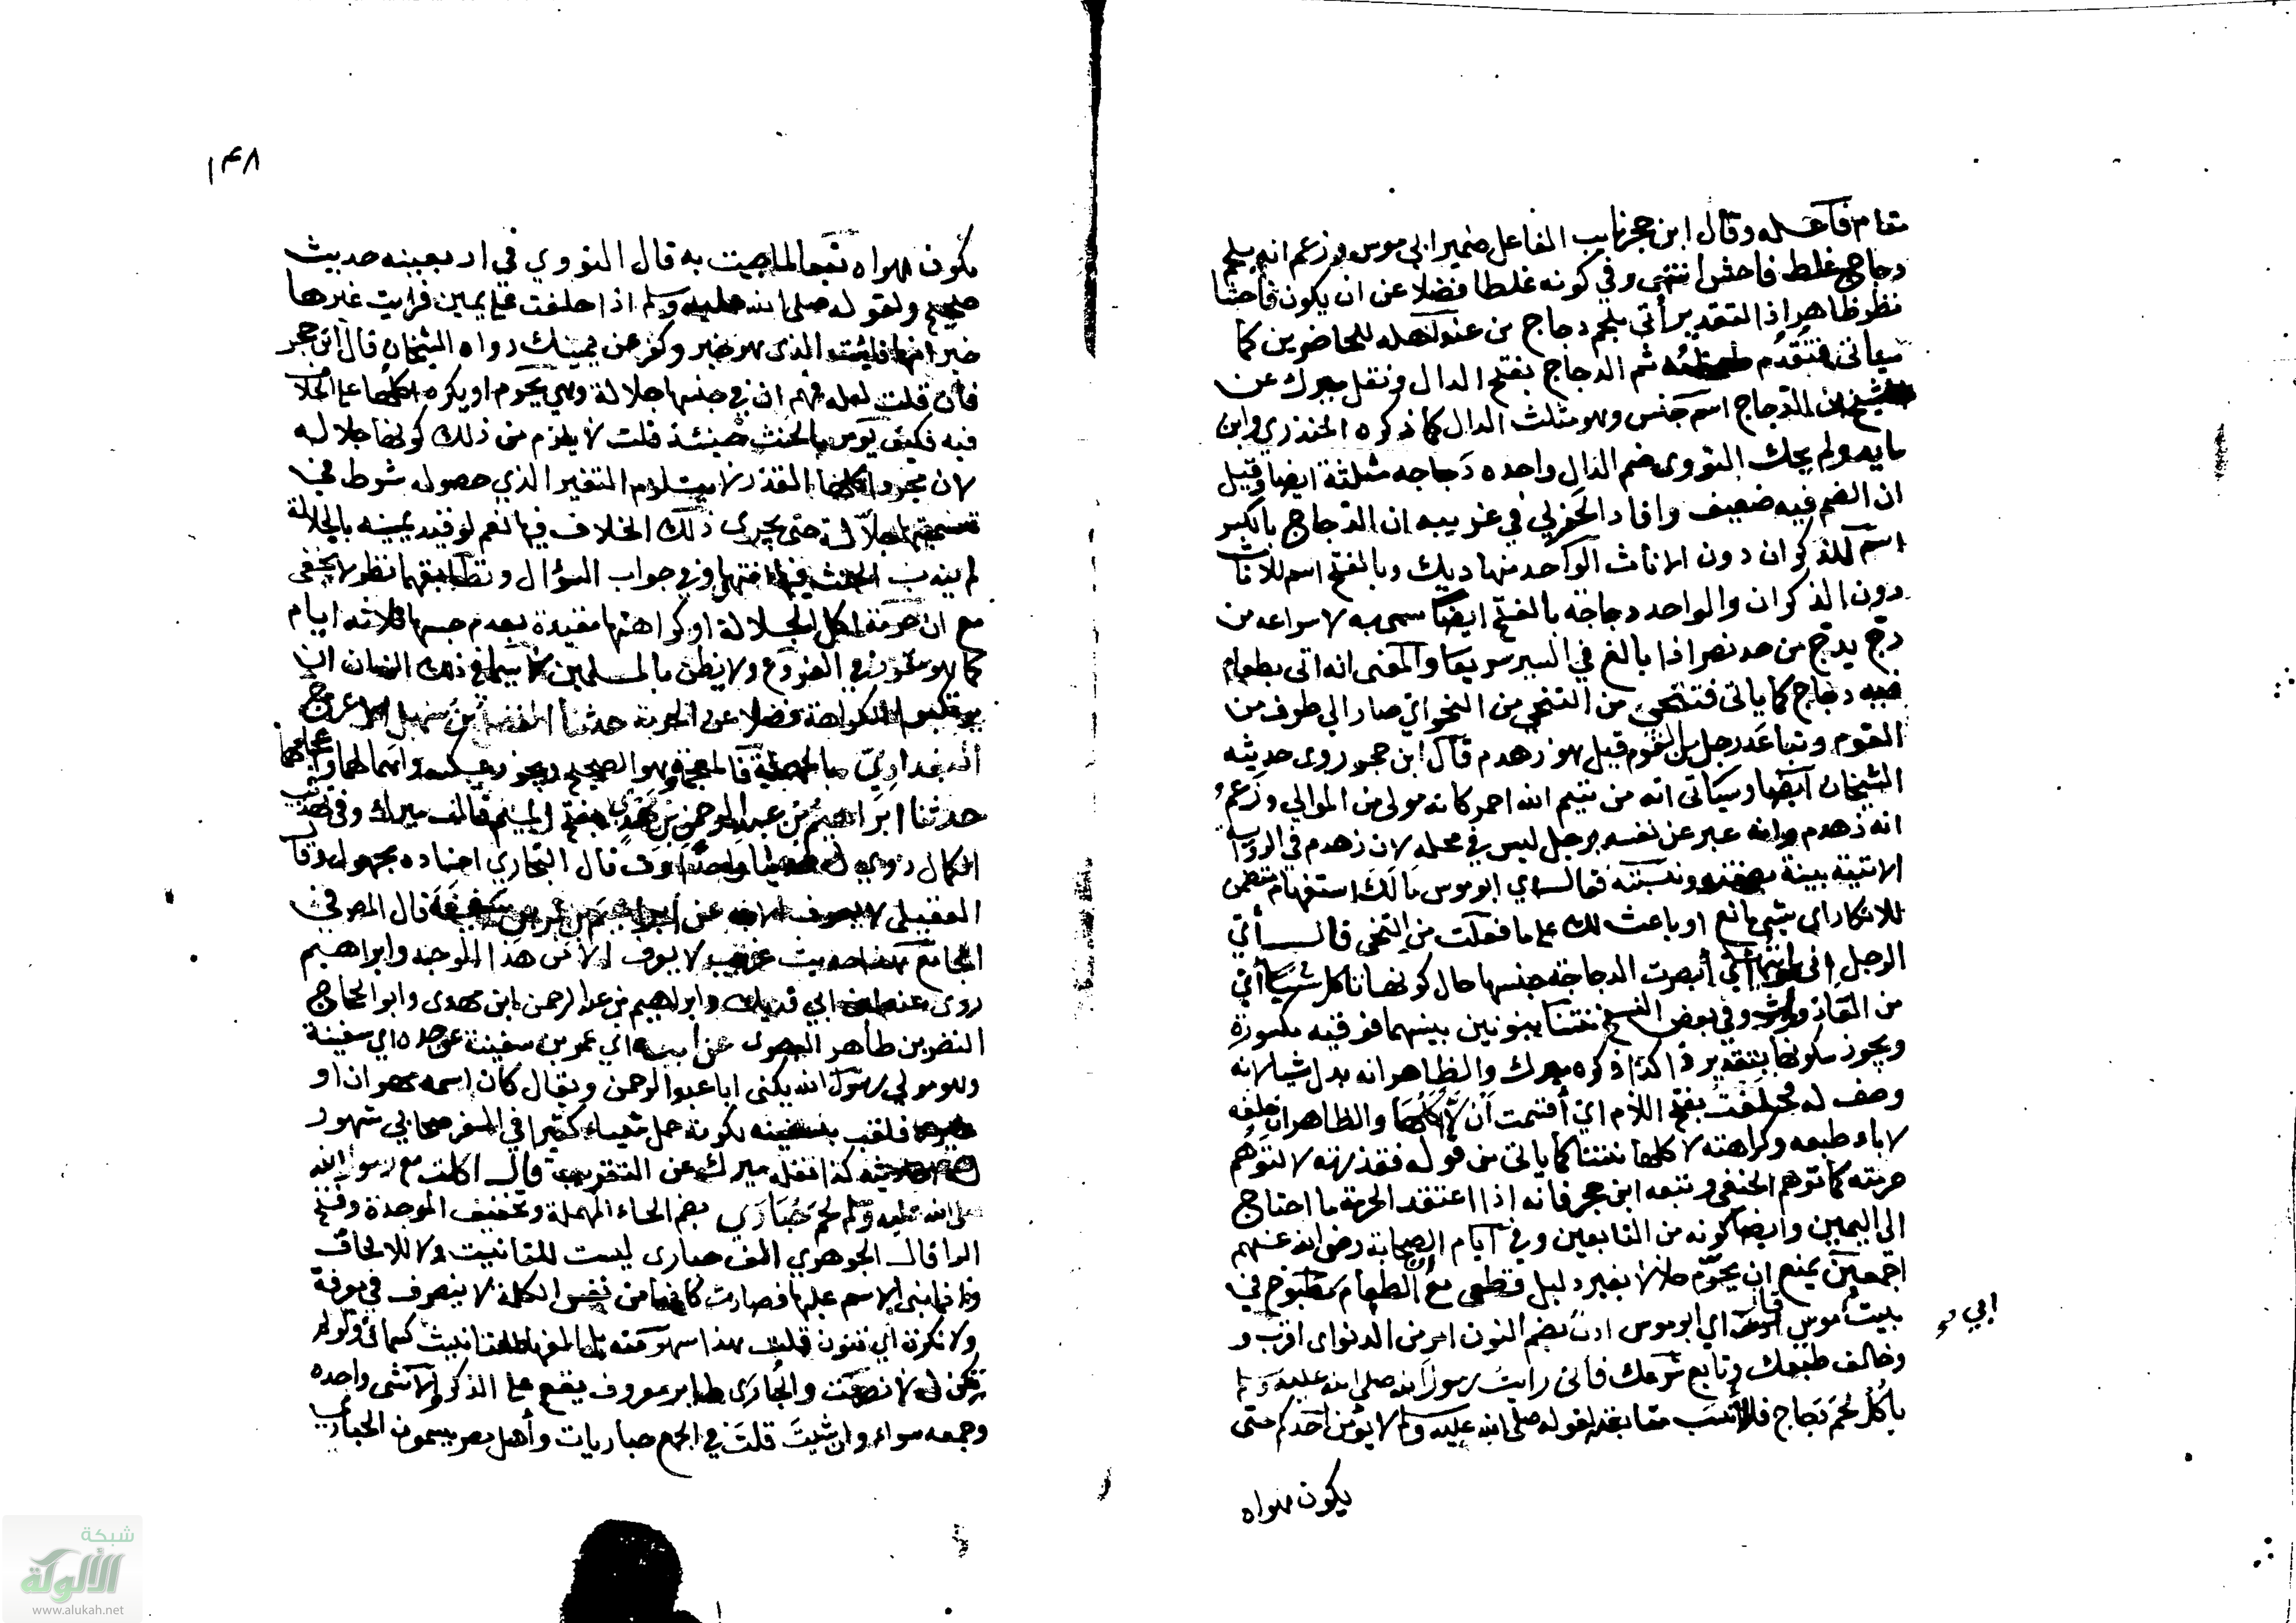 مقام فاعله وقال ابن حجر نايب الفاعل ضمير ابي موسى وزعم انه بلحم
دجاج غلط فاحش انتهى وفي كونه غلطا فضلا عن ان يكون فاحشا
نظر ظاهر اذ التقدير أتي بلحم دجاج من عند اهله للحاضرين كما
سيأتي فتقدم ثم الدجاج بفتح الدال ونقل ميرك عن
الشيخ ان الدجاج اسم جنس وهو مثلث الدال كما ذكره المنذري وابن
مالك ولم يحك النووي ضم الدال واحده دجاجه مثلثة ايضا وقيل
ان الضم فيه ضعيف وافاد الحربي في غريبه ان الدجاج بالكسر
اسم للذكران دون الاناث الواحد منها ديك وبالفتح اسم للاناث
دون الذكران والواحد دجاجة بالفتح ايضا سمي به لاسراعه من
دج يدج من حد نصر اذا بالغ في السير سريعا والمعنى انه اتى بطعام
فيه دجاج كما ياتي فتنحى من التنحي من النحو اي صار الى طرف من
القوم وتباعد رجل من القوم قيل هو زهدم قال ابن حجر روى حديثه
الشيخان ايضا وسيأتي انه من تيم الله احمر كانه مولى من الموالي وزعم
انه زهدم وانه عبر عن نفسه برجل ليس في محله لان زهدم في الرواية
الاتية بينه بصفته ونسبته فقال اي ابو موسى مالك استفهام متضمن
للانكار اي شيء مانع او باعث لك على ما فعلت من التنحي قال أي
الرجل اني رايتها اي أبصرت الدجاجة جنسها حال كونها تاكل شيئا أي
من القاذورات وفي بعض النسخ نتنا بنونين بينهما فوقيه مكسورة
ويجوز سكونها بتقدير ذا كذا ذكره ميرك والظاهر انه بدل شيا لانه
وصف له فحلفت بفتح اللام اي أقسمت أن لا آكلها والظاهر ان حلفه
لاباء طبعه وكراهته لاكلها نتنا كما ياتي من قوله فقذرته لا لتوهم
حرمته كما توهم الحنفي وتبعه ابن حجر فانه اذا اعتقد الحرمة ما احتاج
الى اليمين وايضا كونه من التابعين وفي أيام الصحابة رضي الله عنهم
اجمعين يمنع ان يحرم حلالا بغير دليل قطعي مع أن الطعام مطبوخ في
بيت موسى قال اي ابو موسى ادن بضم النون امر من الدنو اي اقرب و
ابي
وخالف طبعك وتابع شرعك فاني رايت رسول الله صلى الله عليه وسلم
يأكل لحم دجاج فالأنسب متابعته لقوله صلى الله عليه وسلم لا يؤمن احدكم حتى
يكون هواه
١٤٨
يكون هواه تبعا لما جيت به قال النووي في اربعينه حديث
صحيح ولقوله صلى الله عليه وسلم اذا حلفت على يمين فرايت غيرها
خيرا منها فائت الذي هو خير وكفر عن يمينك رواه الشيخان قال ابن حجر
فان قلت لعله فهم ان في جنسها جلالة وهي يحرم او يكره اكلها على الخلاف
فيه فكيف يؤمر بالحنث حينئذ قلت لا يلزم من ذلك كونها جلاله
لان مجرد اكلها القذر لا يستلزم التغير الذي حصوله شرط في
تسميتها جلالة حتى يجري ذلك الخلاف فيها نعم لو قيد يمينه بالجلالة
لم يندب الحنث فيها انتهى وفي جواب السؤال وتطابقهما نظر لا يخفى
مع ان حرمة اكل الجلالة او كراهتها مقيدة بعدم حبسها ثلاثة ايام
كما هو مقرر في الفروع ولا يظن بالمسلمين لا سيما في ذلك الزمان ان
يرتكبوا الكراهة فضلا عن الحرمة حدثنا الفضل بن سهل الاعرج
البغدادي بالمهملة فالمعجمة وهو الصحيح ويجوز عكسه واهمالهما واعجامهما
حدثنا ابراهيم بن عبد الرحمن بن مهدي بفتح الميم قال ميرك وفي تهذيب
الكمال روى له حديثا واحدا وقال البخاري اسناده مجهول وقال
العقيلي لا يعرف الا به عن ابراهيم بن عمر بن سفينة قال المص في
الجامع هذا حديث غريب لا يعرف الا من هذا الوجه وابراهيم
روى عنه ابن ابي فديك وابراهيم بن عبد الرحمن ابن مهدي وابو الحجاج
النضر بن طاهر البصري عن ابيه اي عمر بن سفينة عن جده اي سفينة
وهو مولى رسول الله يكنى ابا عبد الرحمن ويقال كان اسمه مهران او
فلقب بسفينه لكونه حمل شيئا كثيرا في السفر صحابي شهور
كذا نقله ميرك عن التقريب قال اكلت مع رسول الله
صلى الله عليه وسلم لحم حبارى بضم الحاء المهملة وتخفيف الموحدة وفتح
الرا قال الجوهري الف حبارى ليست للتانيث ولا للالحاق
وانما بنى الاسم عليها فصارت كانها من نفس الكلمة لا ينصرف في معرفة
ولا نكرة اي لا تنون قلت هذا سهو منه بل الفها للتانيث كسماني ولو لم
تكن له لانصرفت والحبارى طاير معروف يقع على الذكر والانثى واحده
وجمعه سواء وان شيت قلت في الجمع حباريات وأهل مصر يسمون الحبارى
شبكة
الألوكة
www.alukah.net